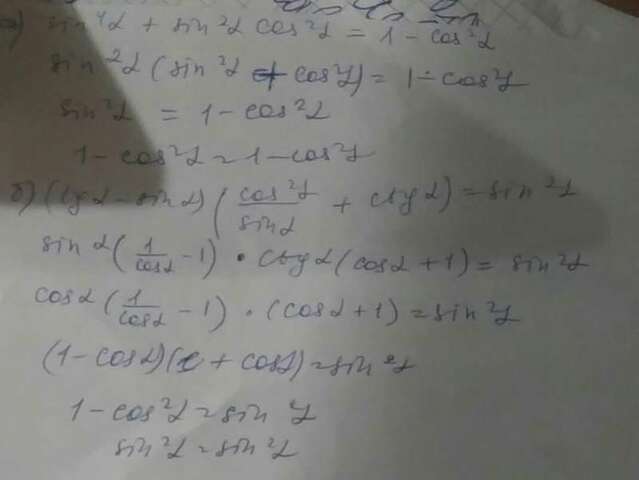 а) sin⁴α + sin²α cos²α = 1 - cos²α
sin²α (sin²α + cos²α) = 1 - cos²α
sin²α = 1 - cos²α
1 - cos²α = 1 - cos²α
б) (tgα - sinα) (cos²α/sinα + ctgα) = sin²α
sinα (1/cosα - 1) · ctgα (cosα + 1) = sin²α
cosα (1/cosα - 1) · (cosα + 1) = sin²α
(1 - cosα)(1 + cosα) = sin²α
1 - cos²α = sin²α
sin²α = sin²α